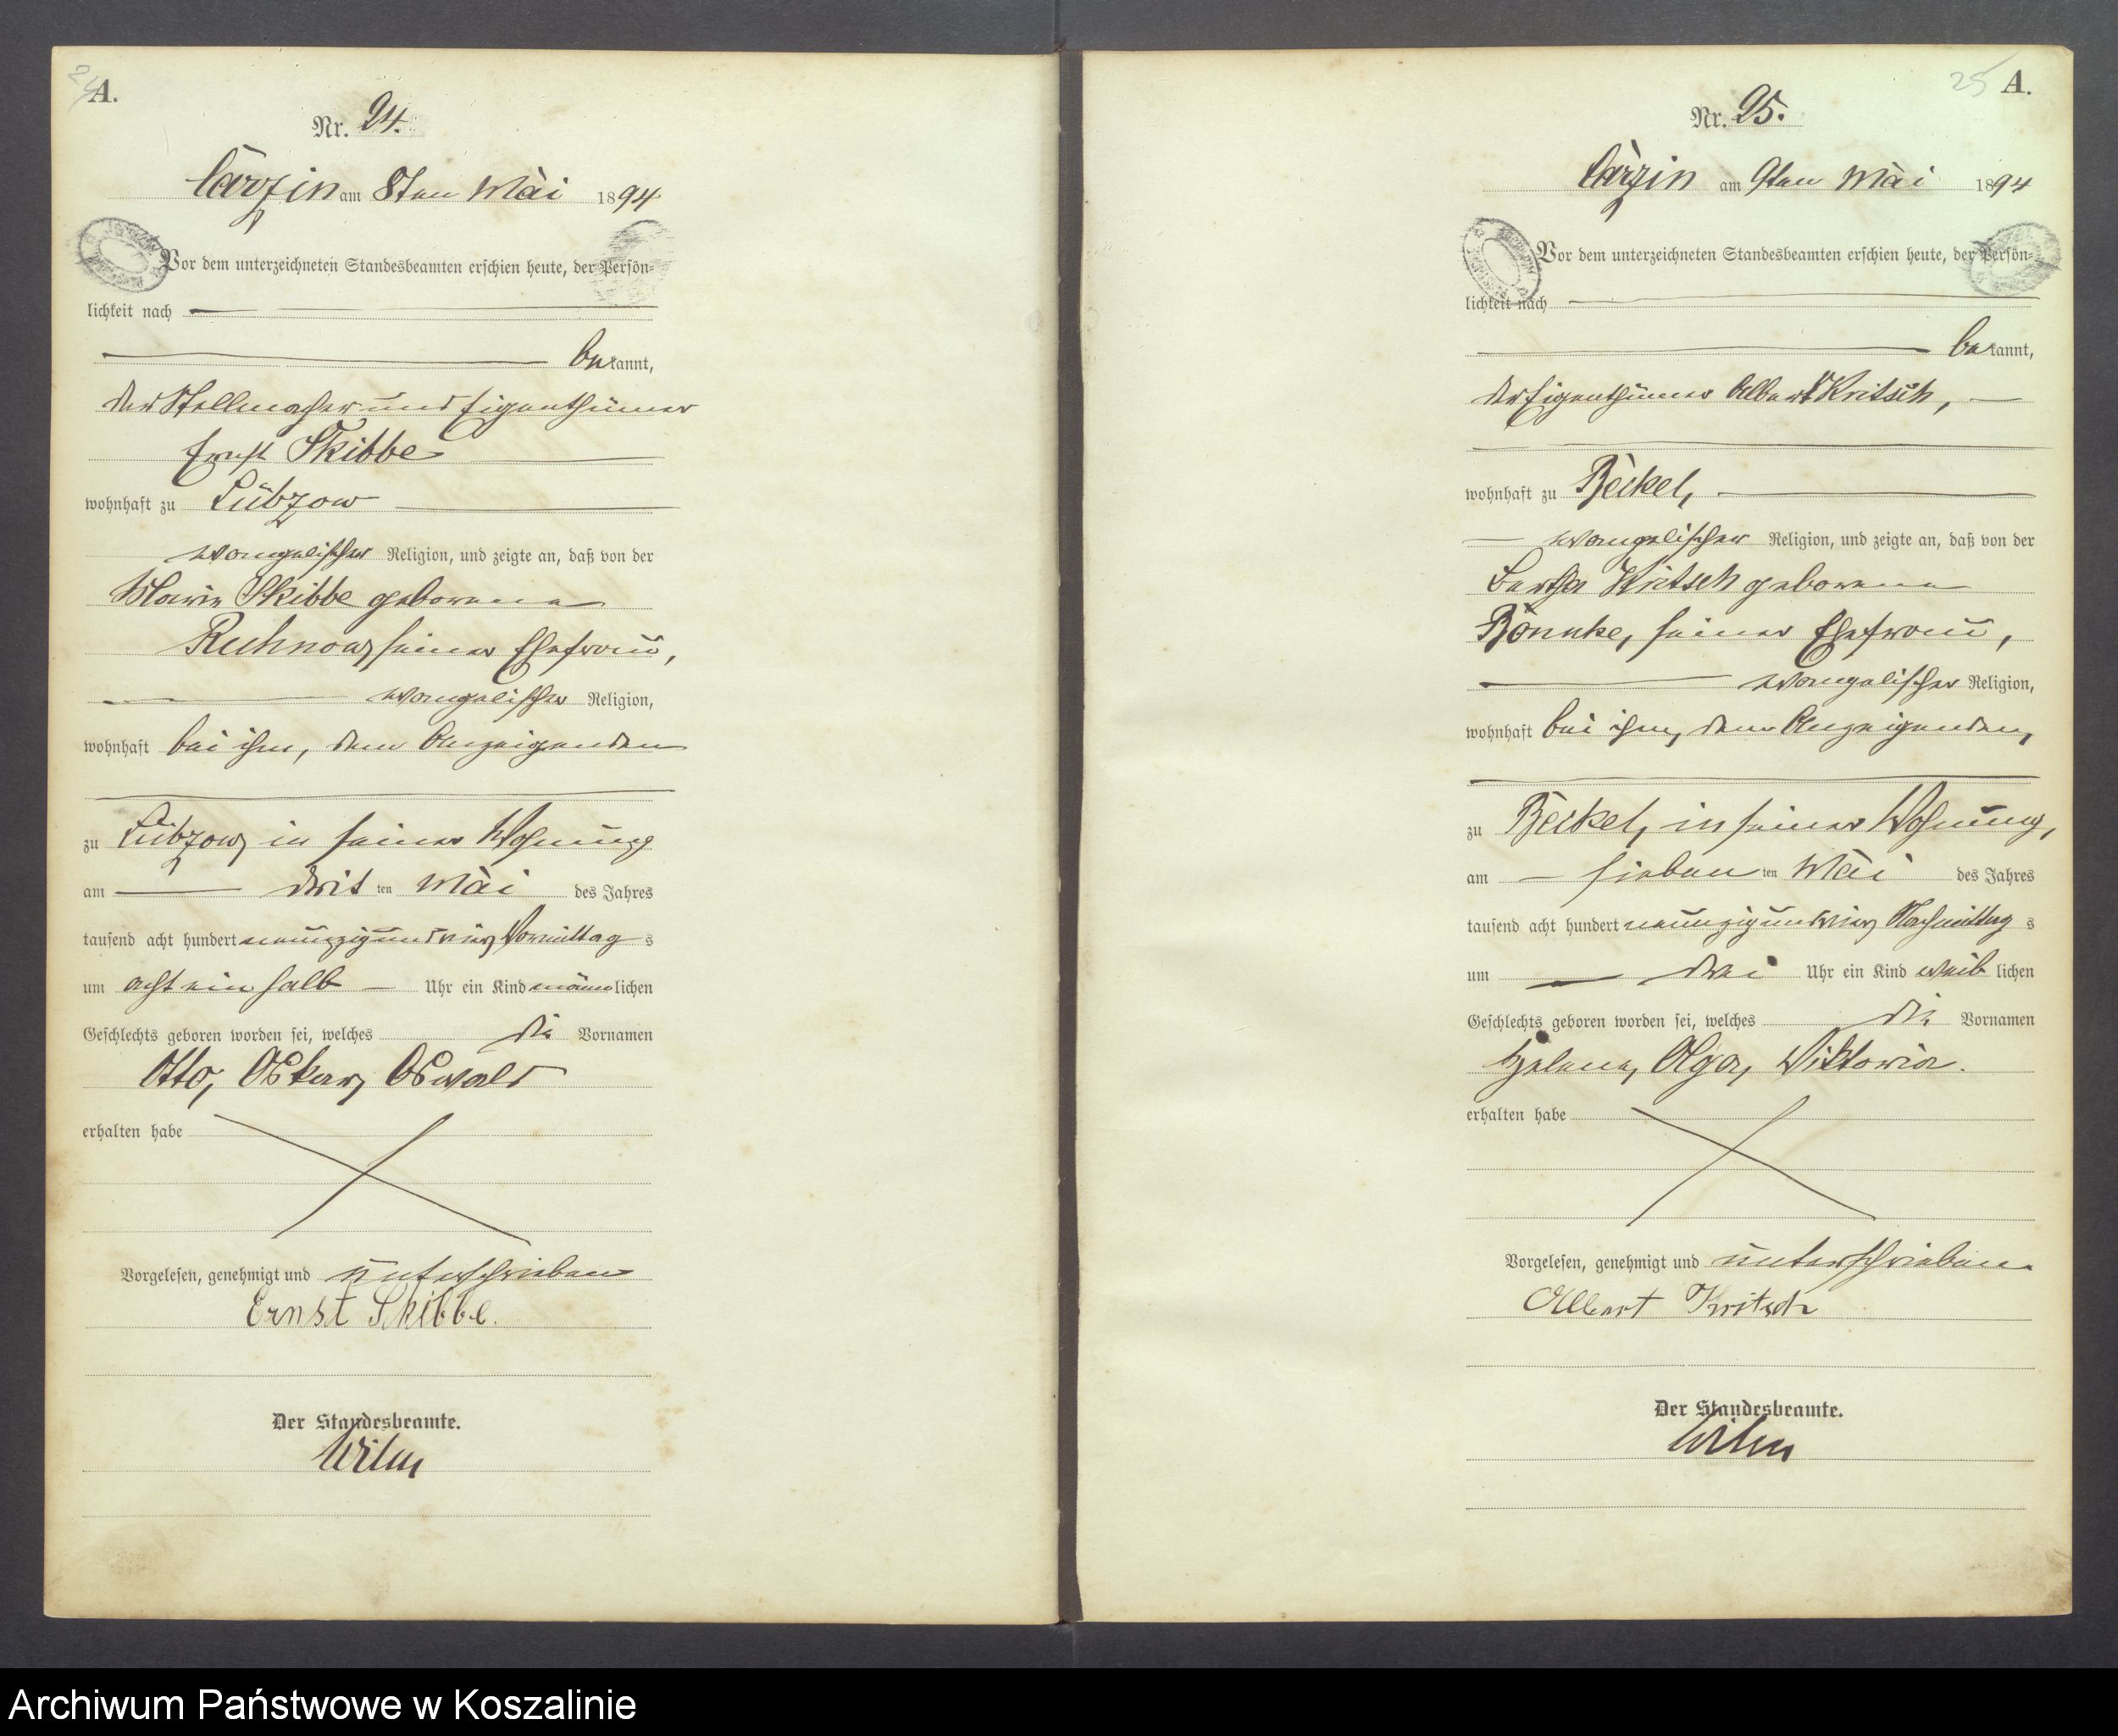 24
A.
Nr. 24.
Carzin am 8ten Mai 1894
Vor dem unterzeichneten Standesbeamten erschien heute, der Persön=
lichkeit nach
bekannt,
der Stellmacher und Eigenthümer
Ernst Skibbe
wohnhaft zu Lübzow
evangelischer Religion, und zeigte an, daß von der
Marie Skibbe geborene
seiner Ehefrau,
evangelischer Religion,
wohnhaft bei ihm, dem Anzeigenden
zu Lübzow, in seiner Wohnung
am dritten Mai des Jahres
tausend acht hundert neunzig und vier, Vormittags
um acht ein halb Uhr ein Kind männlichen
Geschlechts geboren worden sei, welches die Vornamen
Otto, Oskar, Oswald
erhalten habe
Vorgelesen, genehmigt und unterschrieben
Ernst Skibbe.
Der Standesbeamte.
Wilm
25
A.
Nr. 25.
Carzin am 9ten Mai 1894
Vor dem unterzeichneten Standesbeamten erschien heute, der Persön=
lichkeit nach
bekannt,
der Eigenthümer Albert Kritsch,
wohnhaft zu Beckel,
evangelischer Religion, und zeigte an, daß von der
Bertha Kritsch geborene
seiner Ehefrau,
evangelischer Religion,
wohnhaft bei ihm, dem Anzeigenden,
zu Beckel, in seiner Wohnung,
am siebenten Mai des Jahres
tausend acht hundert neunzig und vier, Nachmittags
um drei Uhr ein Kind weiblichen
Geschlechts geboren worden sei, welches die Vornamen
Helene, Olga, Viktoria.
erhalten habe
Vorgelesen, genehmigt und unterschrieben.
Albert Kritsch
Der Standesbeamte.
Wilm
Archiwum Państwowe w Koszalinie